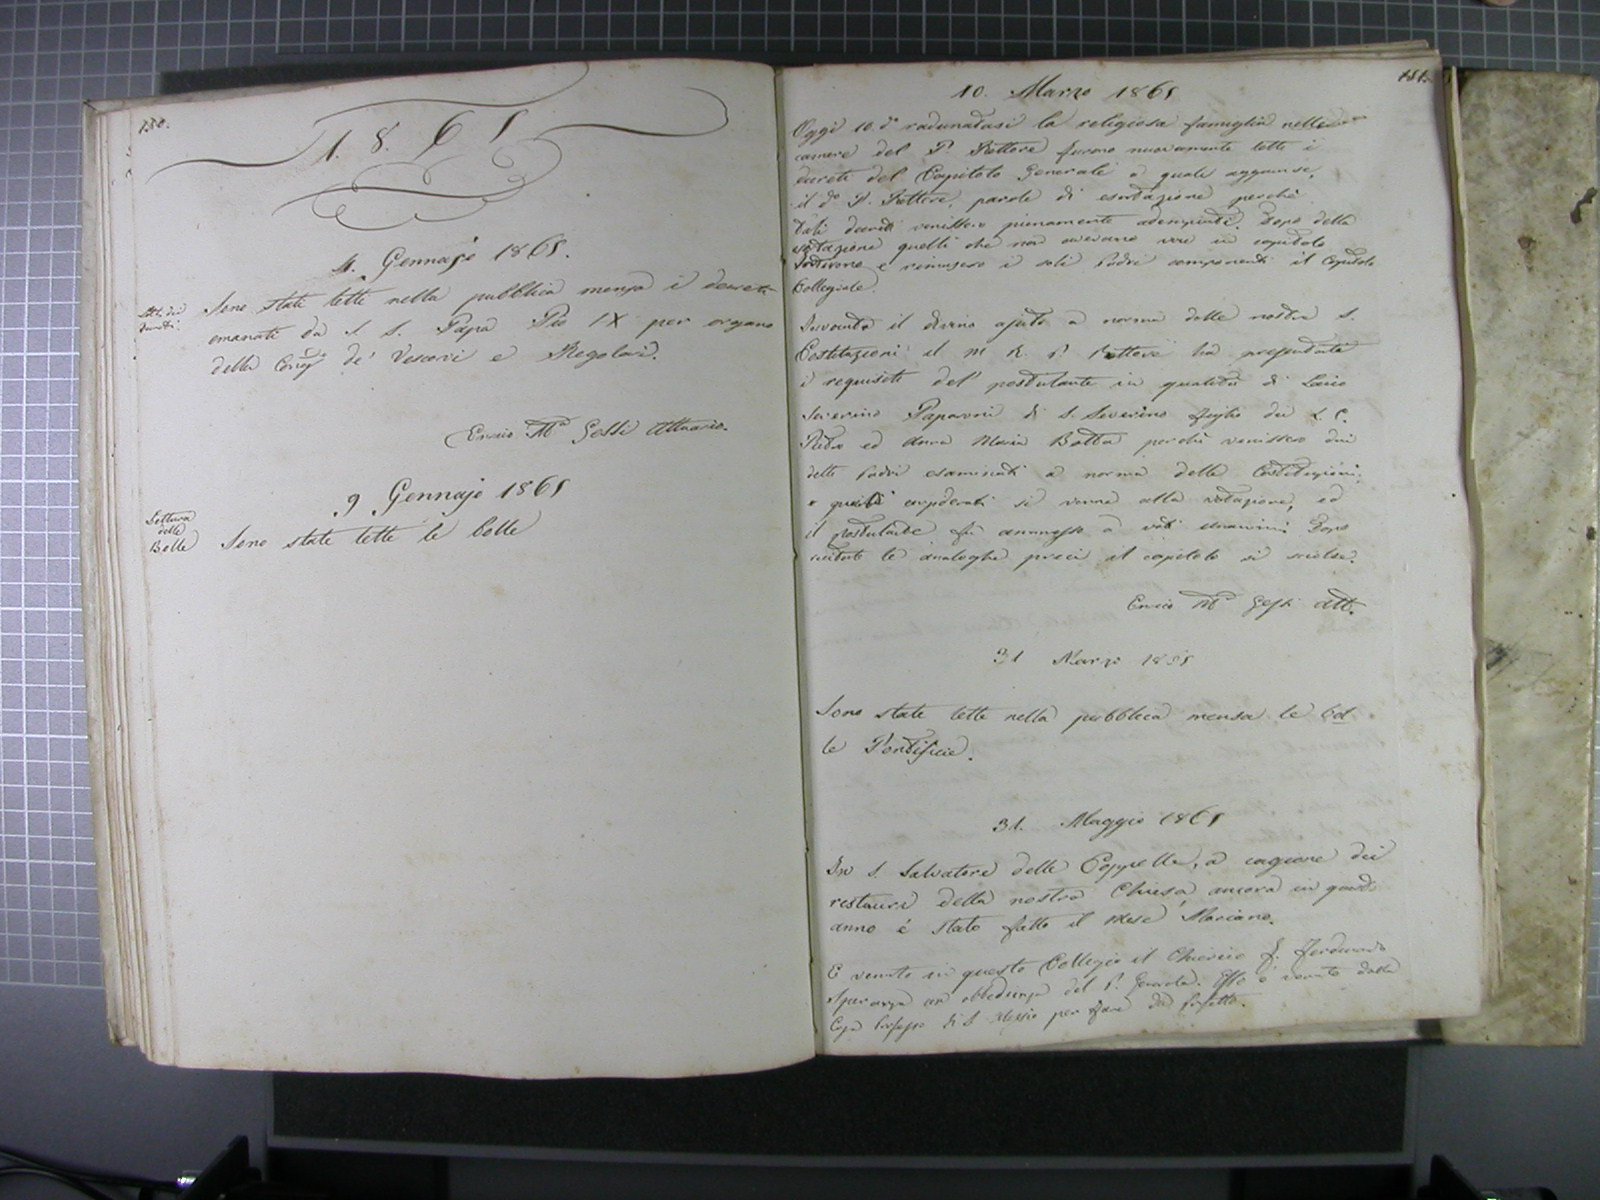 150.
1. 8. 6 1
4. Gennajo 1861.
Sono state lette nella pubblica mensa i decreti
emanati da S. S. Papa Pio IX per organo
della Cong. de' Vescovi e Regolari.
Ennio Mª Gessi Attuario.
9 Gennajo 1861
Lettura
delle
Bolle
Sono state lette le bolle
151.
10. Marzo 1861
Oggi 10 dº radunatasi la religiosa famiglia nelle
camere del P. Rettore furono nuovamente letti i
decreti del Capitolo Generale a quali aggiunse,
il dº P. Rettore, parole di esortazione perchè
tali decreti venissero pienamente adempiuti. Dopo della
esortazione quelli che non avevano voce in capitolo
sortirono e rimasero i soli Padri componenti il Capitolo
Collegiale.
Invocato il divino ajuto a norma delle nostre S.
Costituzioni il M. R. P. Rettore ha presentati
i requisiti del postulante in qualità di Laico
Severino Papavori di S. Severino figlio dei
Pietro ed Anna Maria Botta perchè venissero dai
detti Padri esaminati a norma delle Costituzioni:
e questi considerati si venne alla votazione, ed
il postulante fu ammesso a voti unanimi. Dopo
recitate le analoghe preci il capitolo si sciolse.
Ennio Mª Gessi Att.
31 Marzo 1861
Sono state lette nella pubblica mensa le bol
le Pontificie.
31. Maggio 1861
In S. Salvatore delle Coppelle, a cagione dei
restauri della nostra Chiesa, ancora in quest'
anno é stato fatto il Mese Mariano.
E venuto in questo Collegio il Chierico F. Ferdinando
Speranza con obbedienza del P. Generale. Esso è venuto dalla
Casa Professa di S. Alessio per fare da Prefetto.